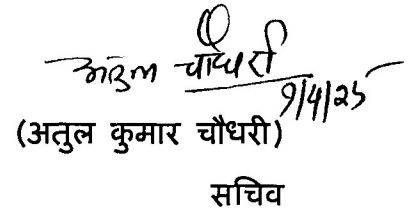 अतुल चौधरी
9/4/25
(अतुल कुमार चौधरी)
सचिव